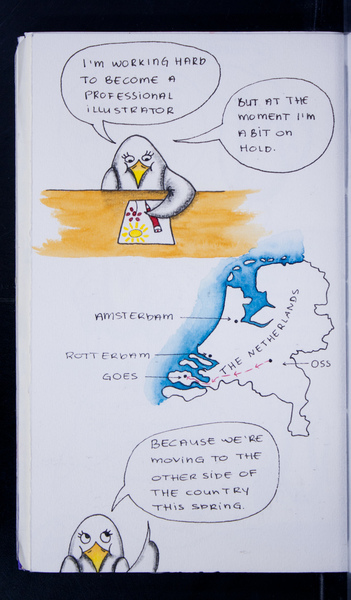 I'M WORKING HARD
TO BECOME A
PROFESSIONAL
ILLUSTRATOR
BUT AT THE
MOMENT I'M
A BIT ON
HOLD.
AMSTERDAM
ROTTERDAM
GOES
THE NETHERLANDS
OSS
BECAUSE WE'RE
MOVING TO THE
OTHER SIDE OF
THE COUNTRY
THIS SPRING.